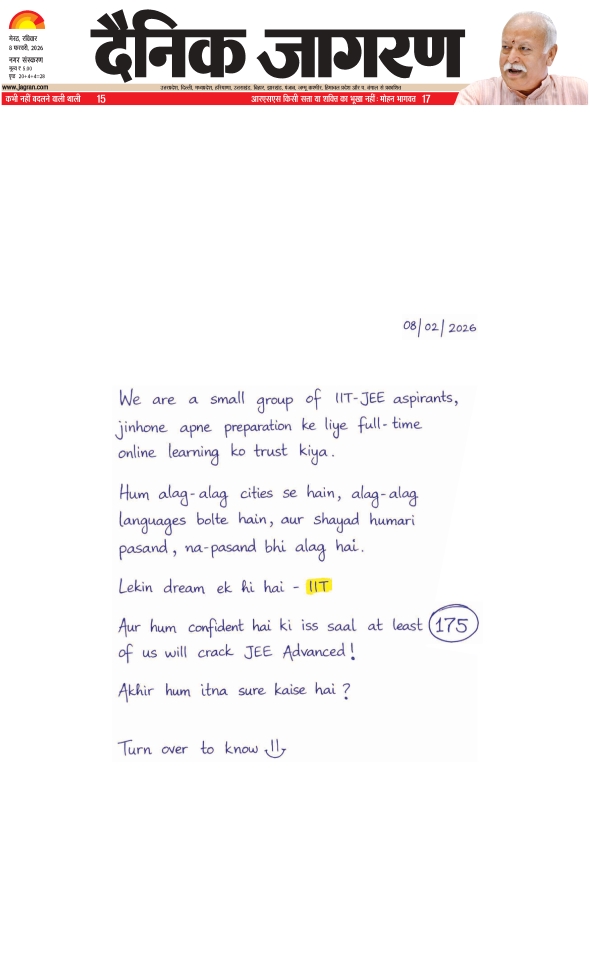 मेरठ, रविवार
8 फरवरी, 2026
नगर संस्करण
मूल्य ₹ 5.00
पृष्ठ 20+4+4=28
दैनिक जागरण
www.jagran.com
उत्तरप्रदेश, दिल्ली, मध्यप्रदेश, हरियाणा, उत्तराखंड, बिहार, झारखंड, पंजाब, जम्मू कश्मीर, हिमाचल प्रदेश और प. बंगाल से प्रकाशित
कभी नहीं बदलने वाली थाली 15
आरएसएस किसी सत्ता या शक्ति का भूखा नहीं : मोहन भागवत 17
08/02/2026
We are a small group of IIT-JEE aspirants,
jinhone apne preparation ke liye full-time
online learning ko trust kiya.
Hum alag-alag cities se hain, alag-alag
languages bolte hain, aur shayad humari
pasand, na-pasand bhi alag hai.
Lekin dream ek hi hai - IIT
Aur hum confident hai ki iss saal at least 175
of us will crack JEE Advanced!
Akhir hum itna sure kaise hai?
Turn over to know